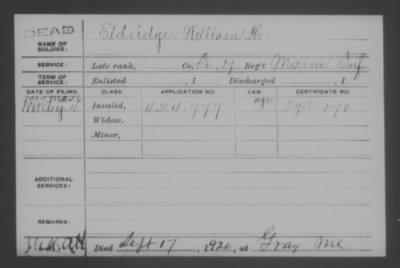 DEAD
NAME OF SOLDIER: Eldridge William H.
SERVICE: Late rank, Co. Reg't Maine Inf
TERM OF SERVICE: Enlisted , 1 Discharged , 1
DATE OF FILING. CLASS. APPLICATION NO. LAW. CERTIFICATE NO.
Invalid, 424.977 age
Widow,
Minor,
ADDITIONAL SERVICES:
REMARKS:
Died Sept 17, 1920, at Gray Me